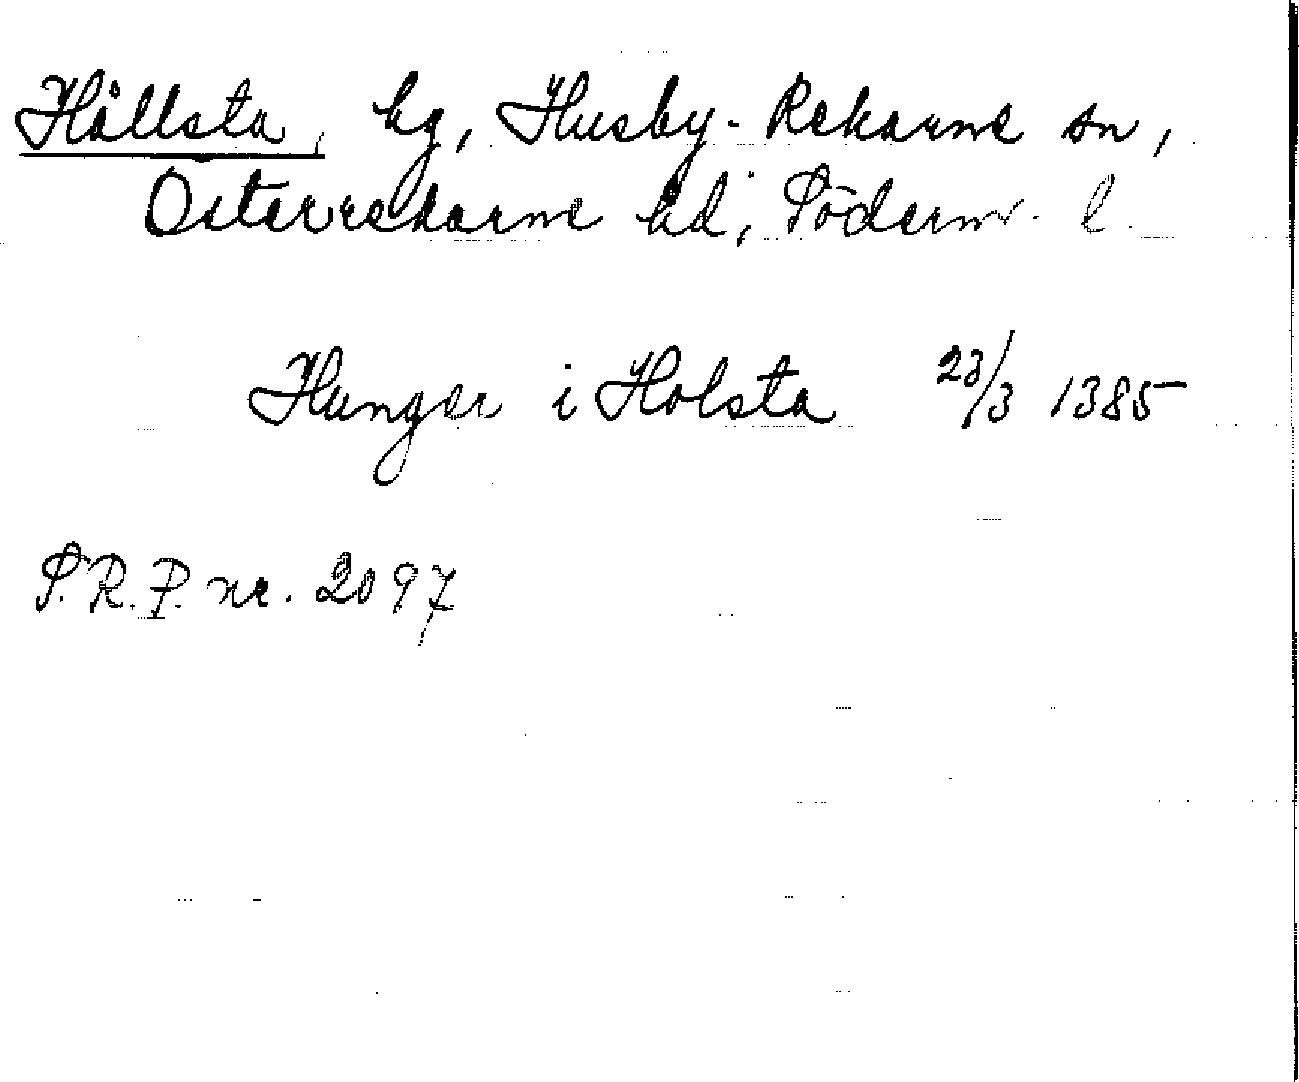 Hållsta, hg, Husby-Rekarne sn,
Österrekarne hd, Söderm. l.
Hunger i Holsta 23/3 1385
S.R.P. nr. 2097